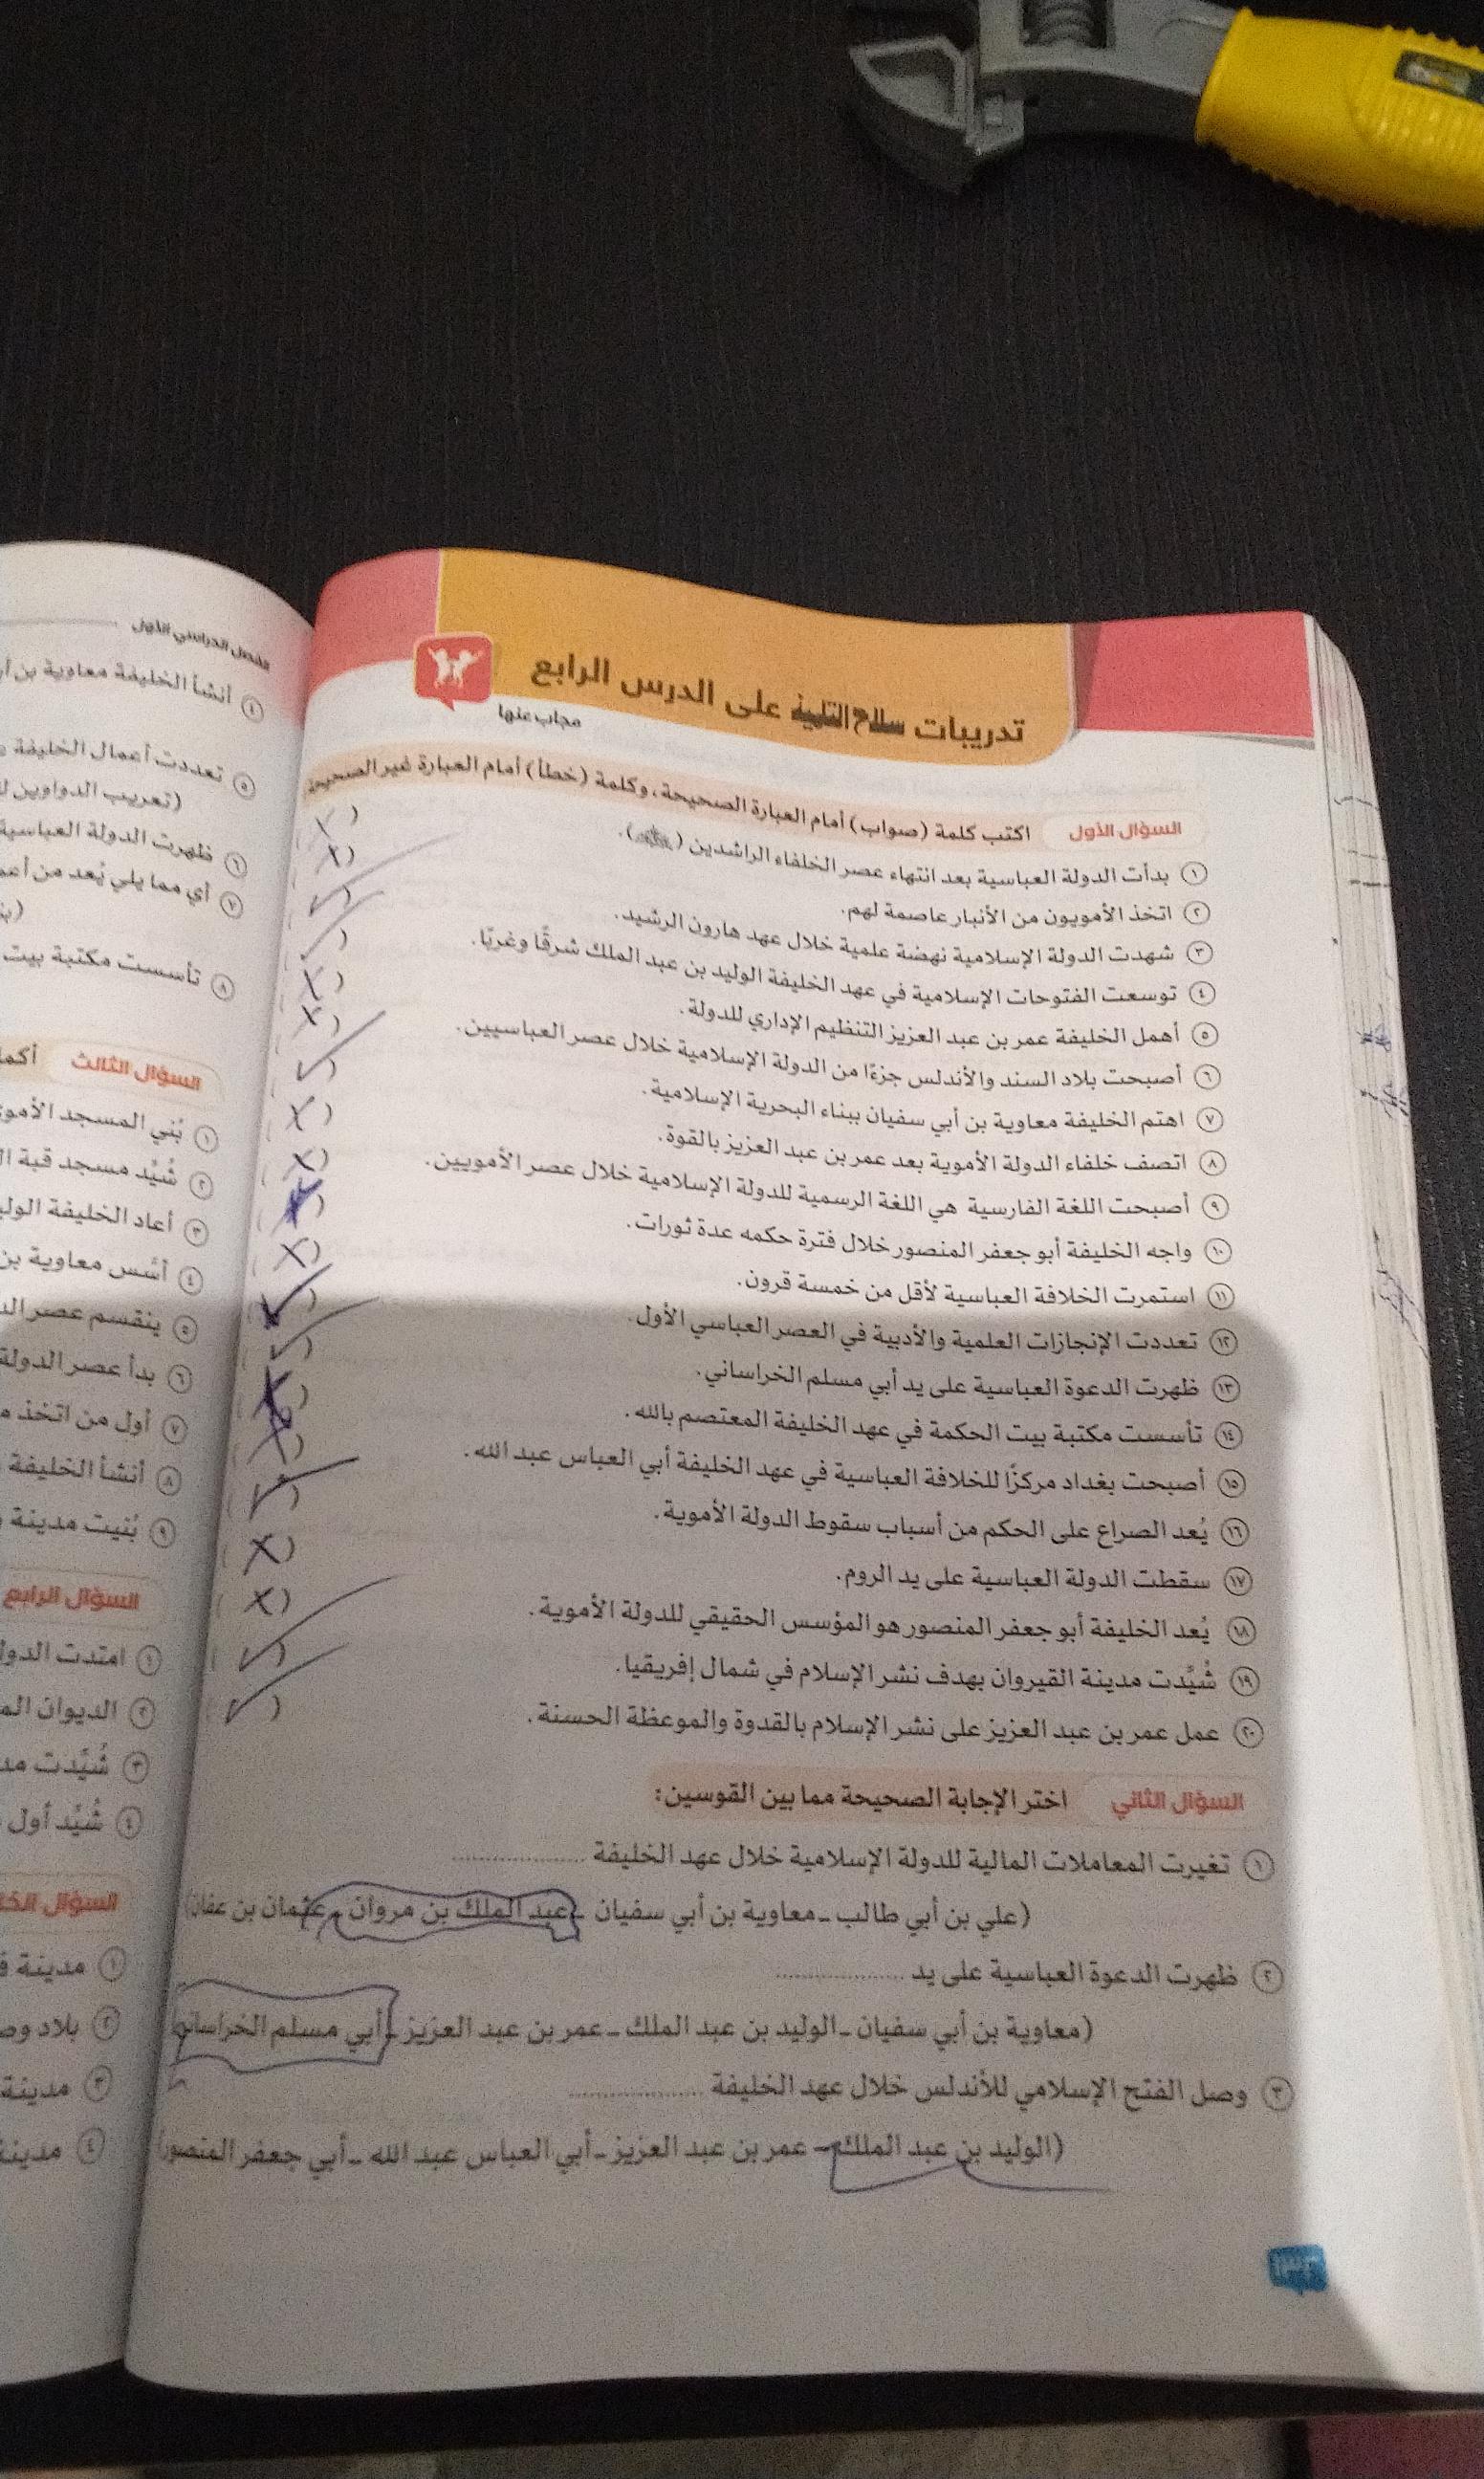 تدريبات سلاح التلميذ على الدرس الرابع
مجاب عنها
السؤال الأول اكتب كلمة (صواب) أمام العبارة الصحيحة، وكلمة (خطأ) أمام العبارة غير الصحيحة
١ بدأت الدولة العباسية بعد انتهاء عصر الخلفاء الراشدين ( ). (X)
٢ اتخذ الأمويون من الأنبار عاصمة لهم. (X)
٣ شهدت الدولة الإسلامية نهضة علمية خلال عهد هارون الرشيد. (✓)
٤ توسعت الفتوحات الإسلامية في عهد الخليفة الوليد بن عبد الملك شرقًا وغربًا. (✓)
٥ أهمل الخليفة عمر بن عبد العزيز التنظيم الإداري للدولة. (X)
٦ أصبحت بلاد السند والأندلس جزءًا من الدولة الإسلامية خلال عصر العباسيين. (X)
٧ اهتم الخليفة معاوية بن أبي سفيان ببناء البحرية الإسلامية. (✓)
٨ اتصف خلفاء الدولة الأموية بعد عمر بن عبد العزيز بالقوة. (X)
٩ أصبحت اللغة الفارسية هي اللغة الرسمية للدولة الإسلامية خلال عصر الأمويين. (X)
١٠ واجه الخليفة أبو جعفر المنصور خلال فترة حكمه عدة ثورات.
١١ استمرت الخلافة العباسية لأقل من خمسة قرون. (X)
١٢ تعددت الإنجازات العلمية والأدبية في العصر العباسي الأول. (✓)
١٣ ظهرت الدعوة العباسية على يد أبي مسلم الخراساني. (✓)
١٤ تأسست مكتبة بيت الحكمة في عهد الخليفة المعتصم بالله. (X)
١٥ أصبحت بغداد مركزًا للخلافة العباسية في عهد الخليفة أبي العباس عبد الله. (X)
١٦ يُعد الصراع على الحكم من أسباب سقوط الدولة الأموية. (✓)
١٧ سقطت الدولة العباسية على يد الروم. (X)
١٨ يُعد الخليفة أبو جعفر المنصور هو المؤسس الحقيقي للدولة الأموية. (X)
١٩ شُيِّدت مدينة القيروان بهدف نشر الإسلام في شمال إفريقيا. (✓)
٢٠ عمل عمر بن عبد العزيز على نشر الإسلام بالقدوة والموعظة الحسنة. (✓)
السؤال الثاني اختر الإجابة الصحيحة مما بين القوسين:
١ تغيرت المعاملات المالية للدولة الإسلامية خلال عهد الخليفة ....................
(علي بن أبي طالب - معاوية بن أبي سفيان - عبد الملك بن مروان - عثمان بن عفان)
٢ ظهرت الدعوة العباسية على يد ....................
(معاوية بن أبي سفيان - الوليد بن عبد الملك - عمر بن عبد العزيز - أبي مسلم الخراساني)
٣ وصل الفتح الإسلامي للأندلس خلال عهد الخليفة ....................
(الوليد بن عبد الملك - عمر بن عبد العزيز - أبي العباس عبد الله - أبي جعفر المنصور)
الفصل الدراسي الأول
٤ أنشأ الخليفة معاوية بن
٥ تعددت أعمال الخليفة
(تعريب الدواوين
٦ ظهرت الدولة العباسية
٧ أي مما يلي يُعد من
٨ تأسست مكتبة بيت
السؤال الثالث
١ بُني المسجد
٢ شُيِّد مسجد قبة
٣ أعاد الخليفة
٤ أسس معاوية بن
٥ ينقسم عصر
٦ بدأ عصر الدولة
٧ أول من اتخذ
٨ أنشأ الخليفة
٩ بُنيت مدينة
السؤال الرابع
١ امتدت
٢ الديوان
٣ شُيِّدت
٤ شُيِّد أول
السؤال
١ مدينة
٢ بلاد
٣ مدينة
٤